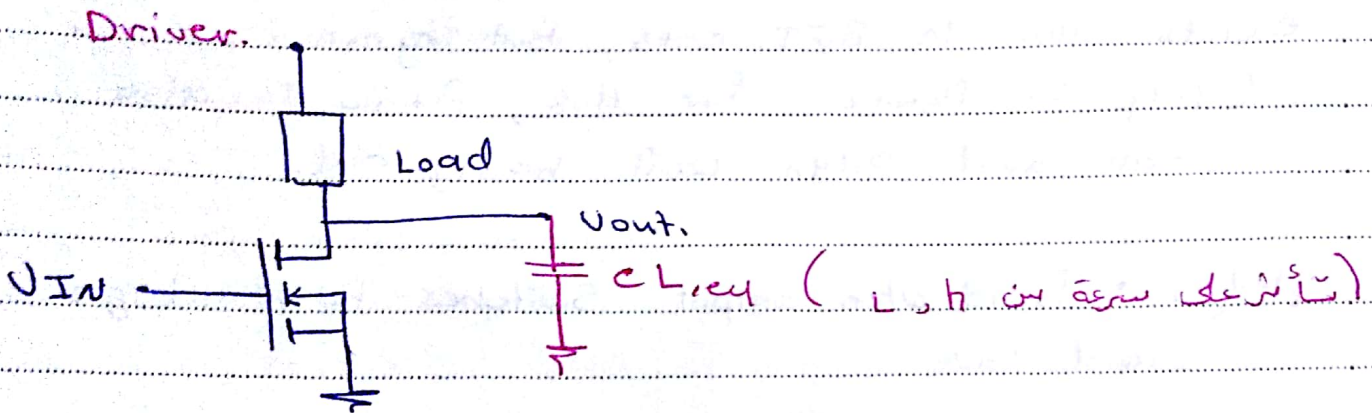 Driver.
Load
Vout.
VIN
CL,eq (تأثر على سرعة من L, h)